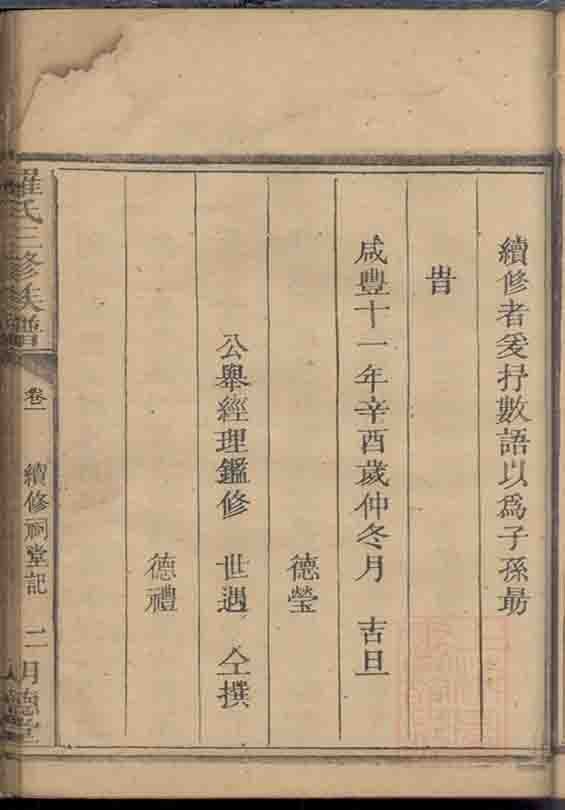 續修者爰抒數語以爲子孫勗
旹
咸豐十一年辛酉歲仲冬月 吉旦
德瑩
公舉經理鑑修 世遇 仝撰
德禮
羅氏三修族譜 卷一 續修祠堂記 二 明德堂